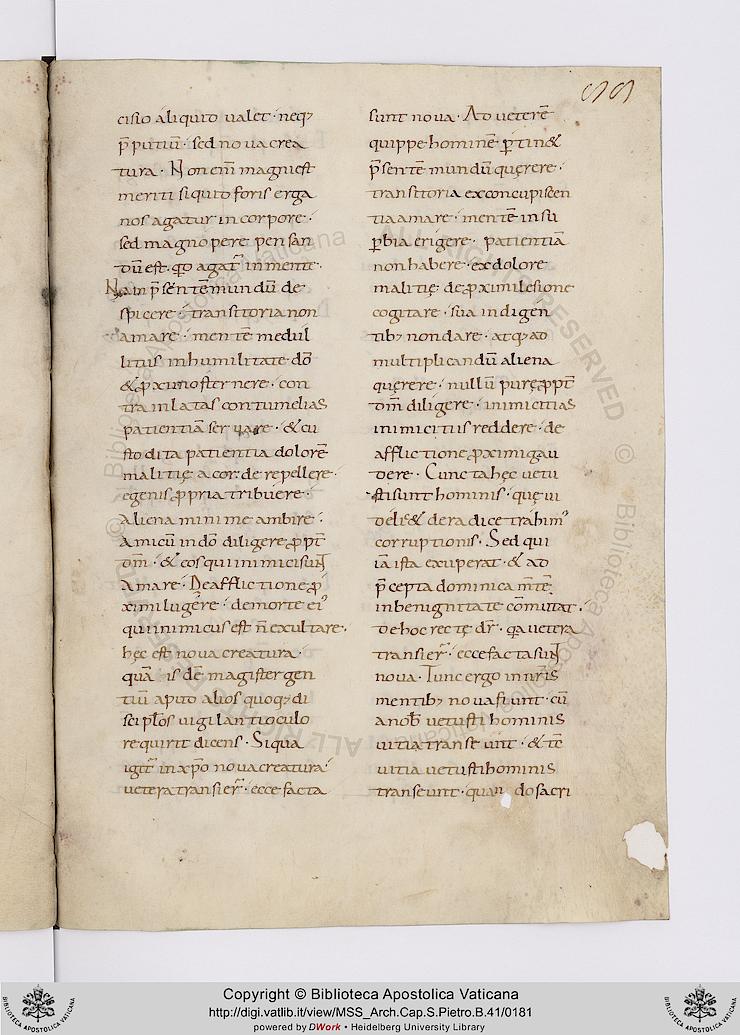 cisio aliquid ualet · neq;
p̄putiū · sed noua crea
tura · Non enī magni est
meriti si quid foris erga
nos agatur in corpore ·
sed magnopere pensan
dū est · qd̄ agat̄ in mente ·
Nam p̄sentē mundū de
spicere · transitoria non
amare · mentē medul
litus in humilitate dō
& ꝓximo sternere · con
tra inlatas contumelias
patientiā seruare · & cu
stodita patientia dolorē
malitię a corde repellere ·
egenis ꝓpria tribuere ·
Aliena minime ambire ·
Amicū in dō diligere ꝓpt̄
dm̄ · & eos qui inimici sunt
Amare · De afflictione ꝓ
ximi lugere · de morte ei'
qui inimicus est n̄ exultare ·
hęc est noua creatura ·
quā is dē magister gen
tiū apud alios quoq; di
scipłos uigilanti oculo
requirit dicens · Siqua
igit̄ in xp̄o noua creatura ·
uetera transier̄ · ecce facta
sunt noua · Ad ueterē
quippe hominē p̱tin&
p̄sentē mundū quęrere ·
transitoria ex concupiscen
tia amare · mentē in su
p̱bia erigere · patientiā
non habere · ex dolore
malitię de ꝓximi lesione
cogitare · sua indigen
tib; non dare · atq; ad
multiplicandū aliena
quęrere · nullū pure ꝓpt̄
dm̄ diligere · inimicitias
inimicitiis reddere · de
afflictione ꝓximi gau
dere · Cuncta hęc uetu
sti sunt hominis · quę ui
delic& de radice trahim'
corruptionis · Sed qui
iā ista exuperat · & ad
p̄cepta dominica m̄tē
in benignitate cōmutat ·
de hoc recte dr̄ · qa uetera
transier̄ · ecce facta sunt
noua · Tunc ergo in nr̄is
mentib; noua fiunt · cū
a nob̄ uetusti hominis
uitia transeunt · & tē
uitia uetusti hominis
transeunt · quando sacri
Copyright © Biblioteca Apostolica Vaticana
http://digi.vatlib.it/view/MSS_Arch.Cap.S.Pietro.B.41/0181
powered by DWork • Heidelberg University Library
BIBLIOTECA APOSTOLICA VATICANA
BIBLIOTECA APOSTOLICA VATICANA